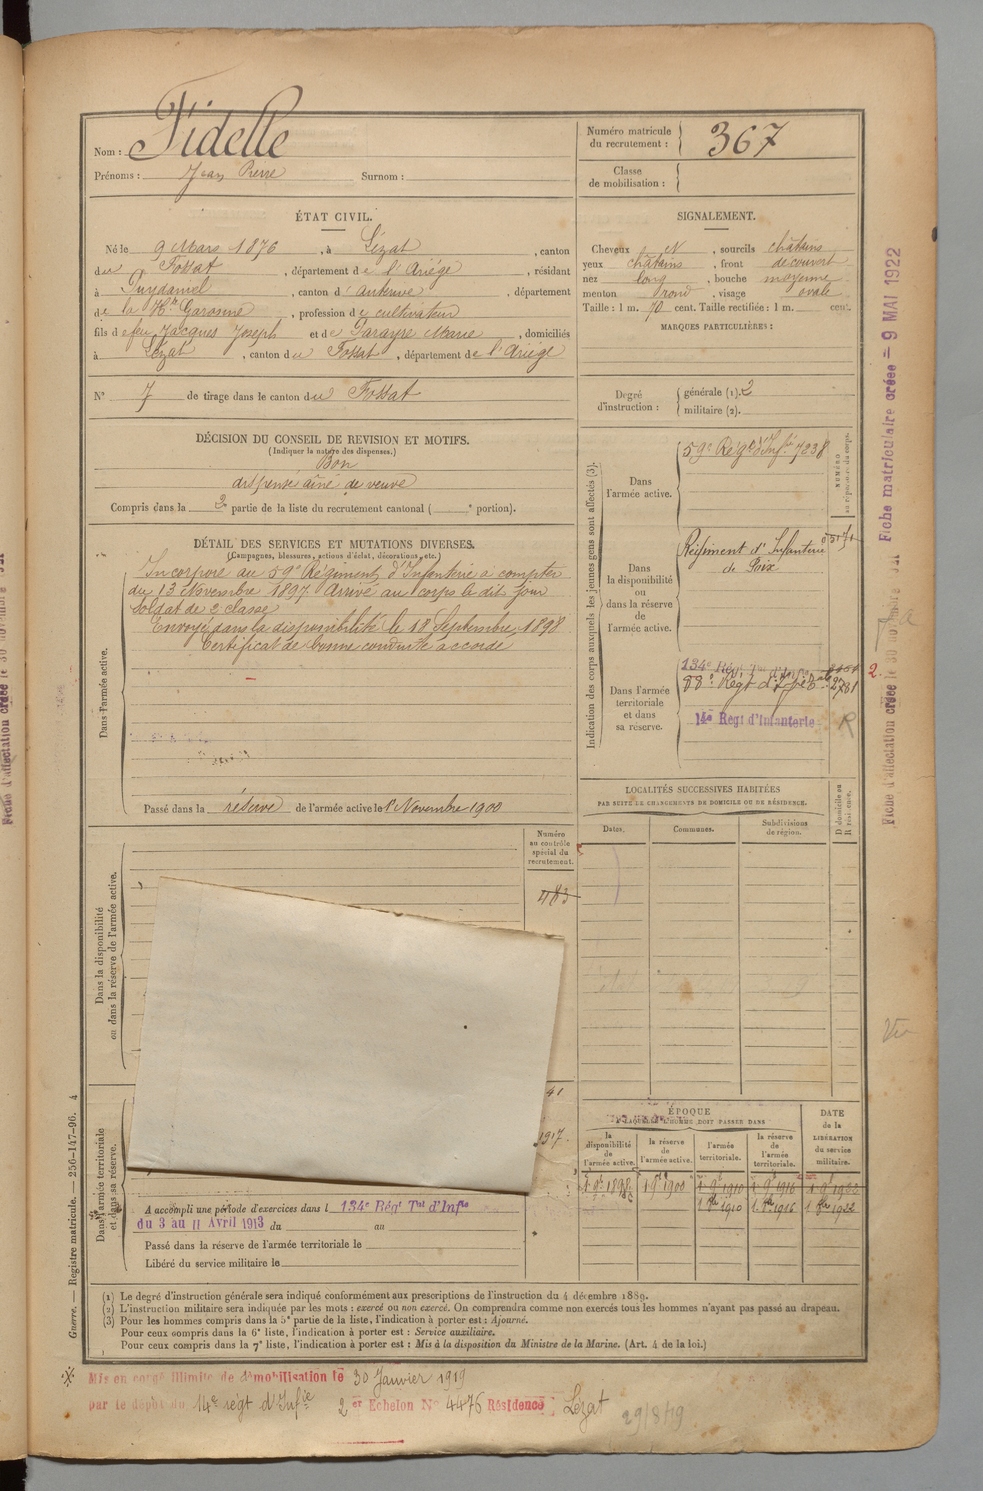 Nom : Fidelle
Prénoms : Jean Pierre Surnom :
Numéro matricule du recrutement : 367
Classe de mobilisation :
ÉTAT CIVIL.
Né le 9 Mars 1876, à Lézat, canton
du Fossat, département de l'Ariége, résidant
à Puydaniel, canton d'auterive, département
de la Hte Garonne, profession de cultivateur
fils de feu Jacques Joseph et de Sarayre Marie, domiciliés
à Lézat, canton du Fossat, département de l'Ariége
N° 7 de tirage dans le canton du Fossat
SIGNALEMENT.
Cheveux N, sourcils châtains
yeux châtains, front découvert
nez long, bouche moyenne
menton rond, visage ovale
Taille : 1 m. 70 cent. Taille rectifiée : 1 m. cent.
MARQUES PARTICULIÈRES :
Degré d'instruction : générale (1). 2
militaire (2).
DÉCISION DU CONSEIL DE REVISION ET MOTIFS.
(Indiquer la nature des dispenses.)
Bon
dispensé aîné de veuve
Compris dans la 2e partie de la liste du recrutement cantonal ( e portion).
DÉTAIL DES SERVICES ET MUTATIONS DIVERSES.
(Campagnes, blessures, actions d'éclat, décorations, etc.)
Dans l'armée active.
Incorporé au 59e Régiment d'Infanterie à compter
du 13 Novembre 1897. Arrivé au corps le dit jour
Soldat de 2e classe
Envoyé dans la disponibilité le 18 Septembre 1898
Certificat de bonne conduite accordé
Passé dans la réserve de l'armée active le 1er Novembre 1900
Indication des corps auxquels les jeunes gens sont affectés (3).
NUMÉRO au répertoire du corps.
Dans l'armée active.
59e Régt d'Infie 7238
Dans la disponibilité ou dans la réserve de l'armée active.
Régiment d'Infanterie
de Foix
Dans l'armée territoriale et dans sa réserve.
134e Rég Tal d'Infie
88e Régt d'Infie 2781
14e Régt d'Infanterie
R
2.
LOCALITÉS SUCCESSIVES HABITÉES
PAR SUITE DE CHANGEMENTS DE DOMICILE OU DE RÉSIDENCE.
Dates. Communes. Subdivisions de région. D domicile ou R résidence.
Numéro au contrôle spécial du recrutement.
483
Dans la disponibilité ou dans la réserve de l'armée active.
41
1917.
Dans l'armée territoriale et dans sa réserve.
A accompli une période d'exercices dans l 134e Régt Tal d'Infie
du 3 au 11 Avril 1913 du au
Passé dans la réserve de l'armée territoriale le
Libéré du service militaire le
ÉPOQUE
À LAQUELLE L'HOMME DOIT PASSER DANS
la disponibilité de l'armée active. la réserve de l'armée active. l'armée territoriale. la réserve de l'armée territoriale. DATE de la LIBÉRATION du service militaire.
1 9e 1898 1 9e 1900 1 9e 1910 1 9e 1916 1 9e 1922
1 8e 1910 1 8e 1916 1 8e 1922
(1) Le degré d'instruction générale sera indiqué conformément aux prescriptions de l'instruction du 4 décembre 1889.
(2) L'instruction militaire sera indiquée par les mots : exercé ou non exercé. On comprendra comme non exercés tous les hommes n'ayant pas passé au drapeau.
(3) Pour les hommes compris dans la 5e partie de la liste, l'indication à porter est : Ajourné.
Pour ceux compris dans la 6e liste, l'indication à porter est : Service auxiliaire.
Pour ceux compris dans la 7e liste, l'indication à porter est : Mis à la disposition du Ministre de la Marine. (Art. 4 de la loi.)
Mis en congé illimité de démobilisation le 30 Janvier 1919
par le dépôt du 14e régt d'Infie 2er Echelon N° 4476 Résidence : Lézat
29/8/19
Guerre. — Registre matricule. — 256-147-96. 4
Fiche matriculaire créée = 9 MAI 1922
Fiche d'affectation créée le 30 novembre